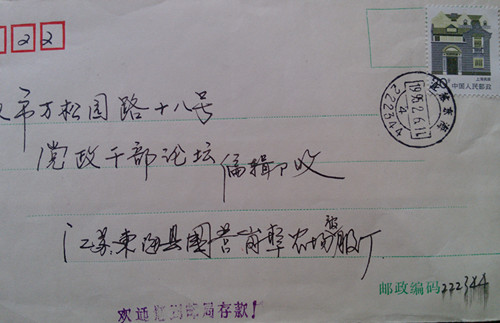 22
市万松园路十八号
党政干部论坛编辑部收
江苏东海县国营岗埠农场被服厂
邮政编码 222344
欢迎您到邮局存款!
上海民居
中国人民邮政
1995.2.6.11